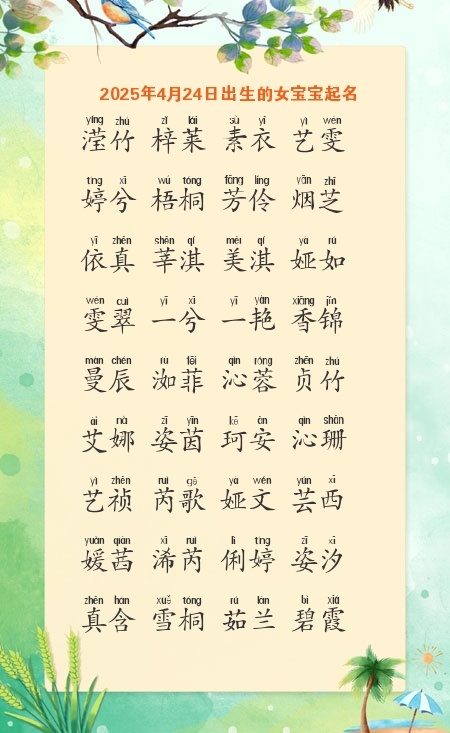 2025年4月24日出生的女宝宝起名
yíng zhú zǐ lái sù yī yì wén
滢竹 梓莱 素衣 艺雯
tíng xī wú tóng fāng líng yān zhī
婷兮 梧桐 芳伶 烟芝
yī zhēn shēn qí měi qí yà rú
依真 莘淇 美淇 娅如
wén cuì yī xī yī yàn xiāng jǐn
雯翠 一兮 一艳 香锦
màn chén rù fēi qìn róng zhēn zhú
曼辰 洳菲 沁蓉 贞竹
ài nà zī yīn kē ān qìn shān
艾娜 姿茵 珂安 沁珊
yì zhēn ruì gē yà wén yún xī
艺祯 芮歌 娅文 芸西
yuàn qiàn xī ruì lì tíng zī xī
媛茜 浠芮 俐婷 姿汐
zhēn hán xuě tóng rú lán bì xiá
真含 雪桐 茹兰 碧霞